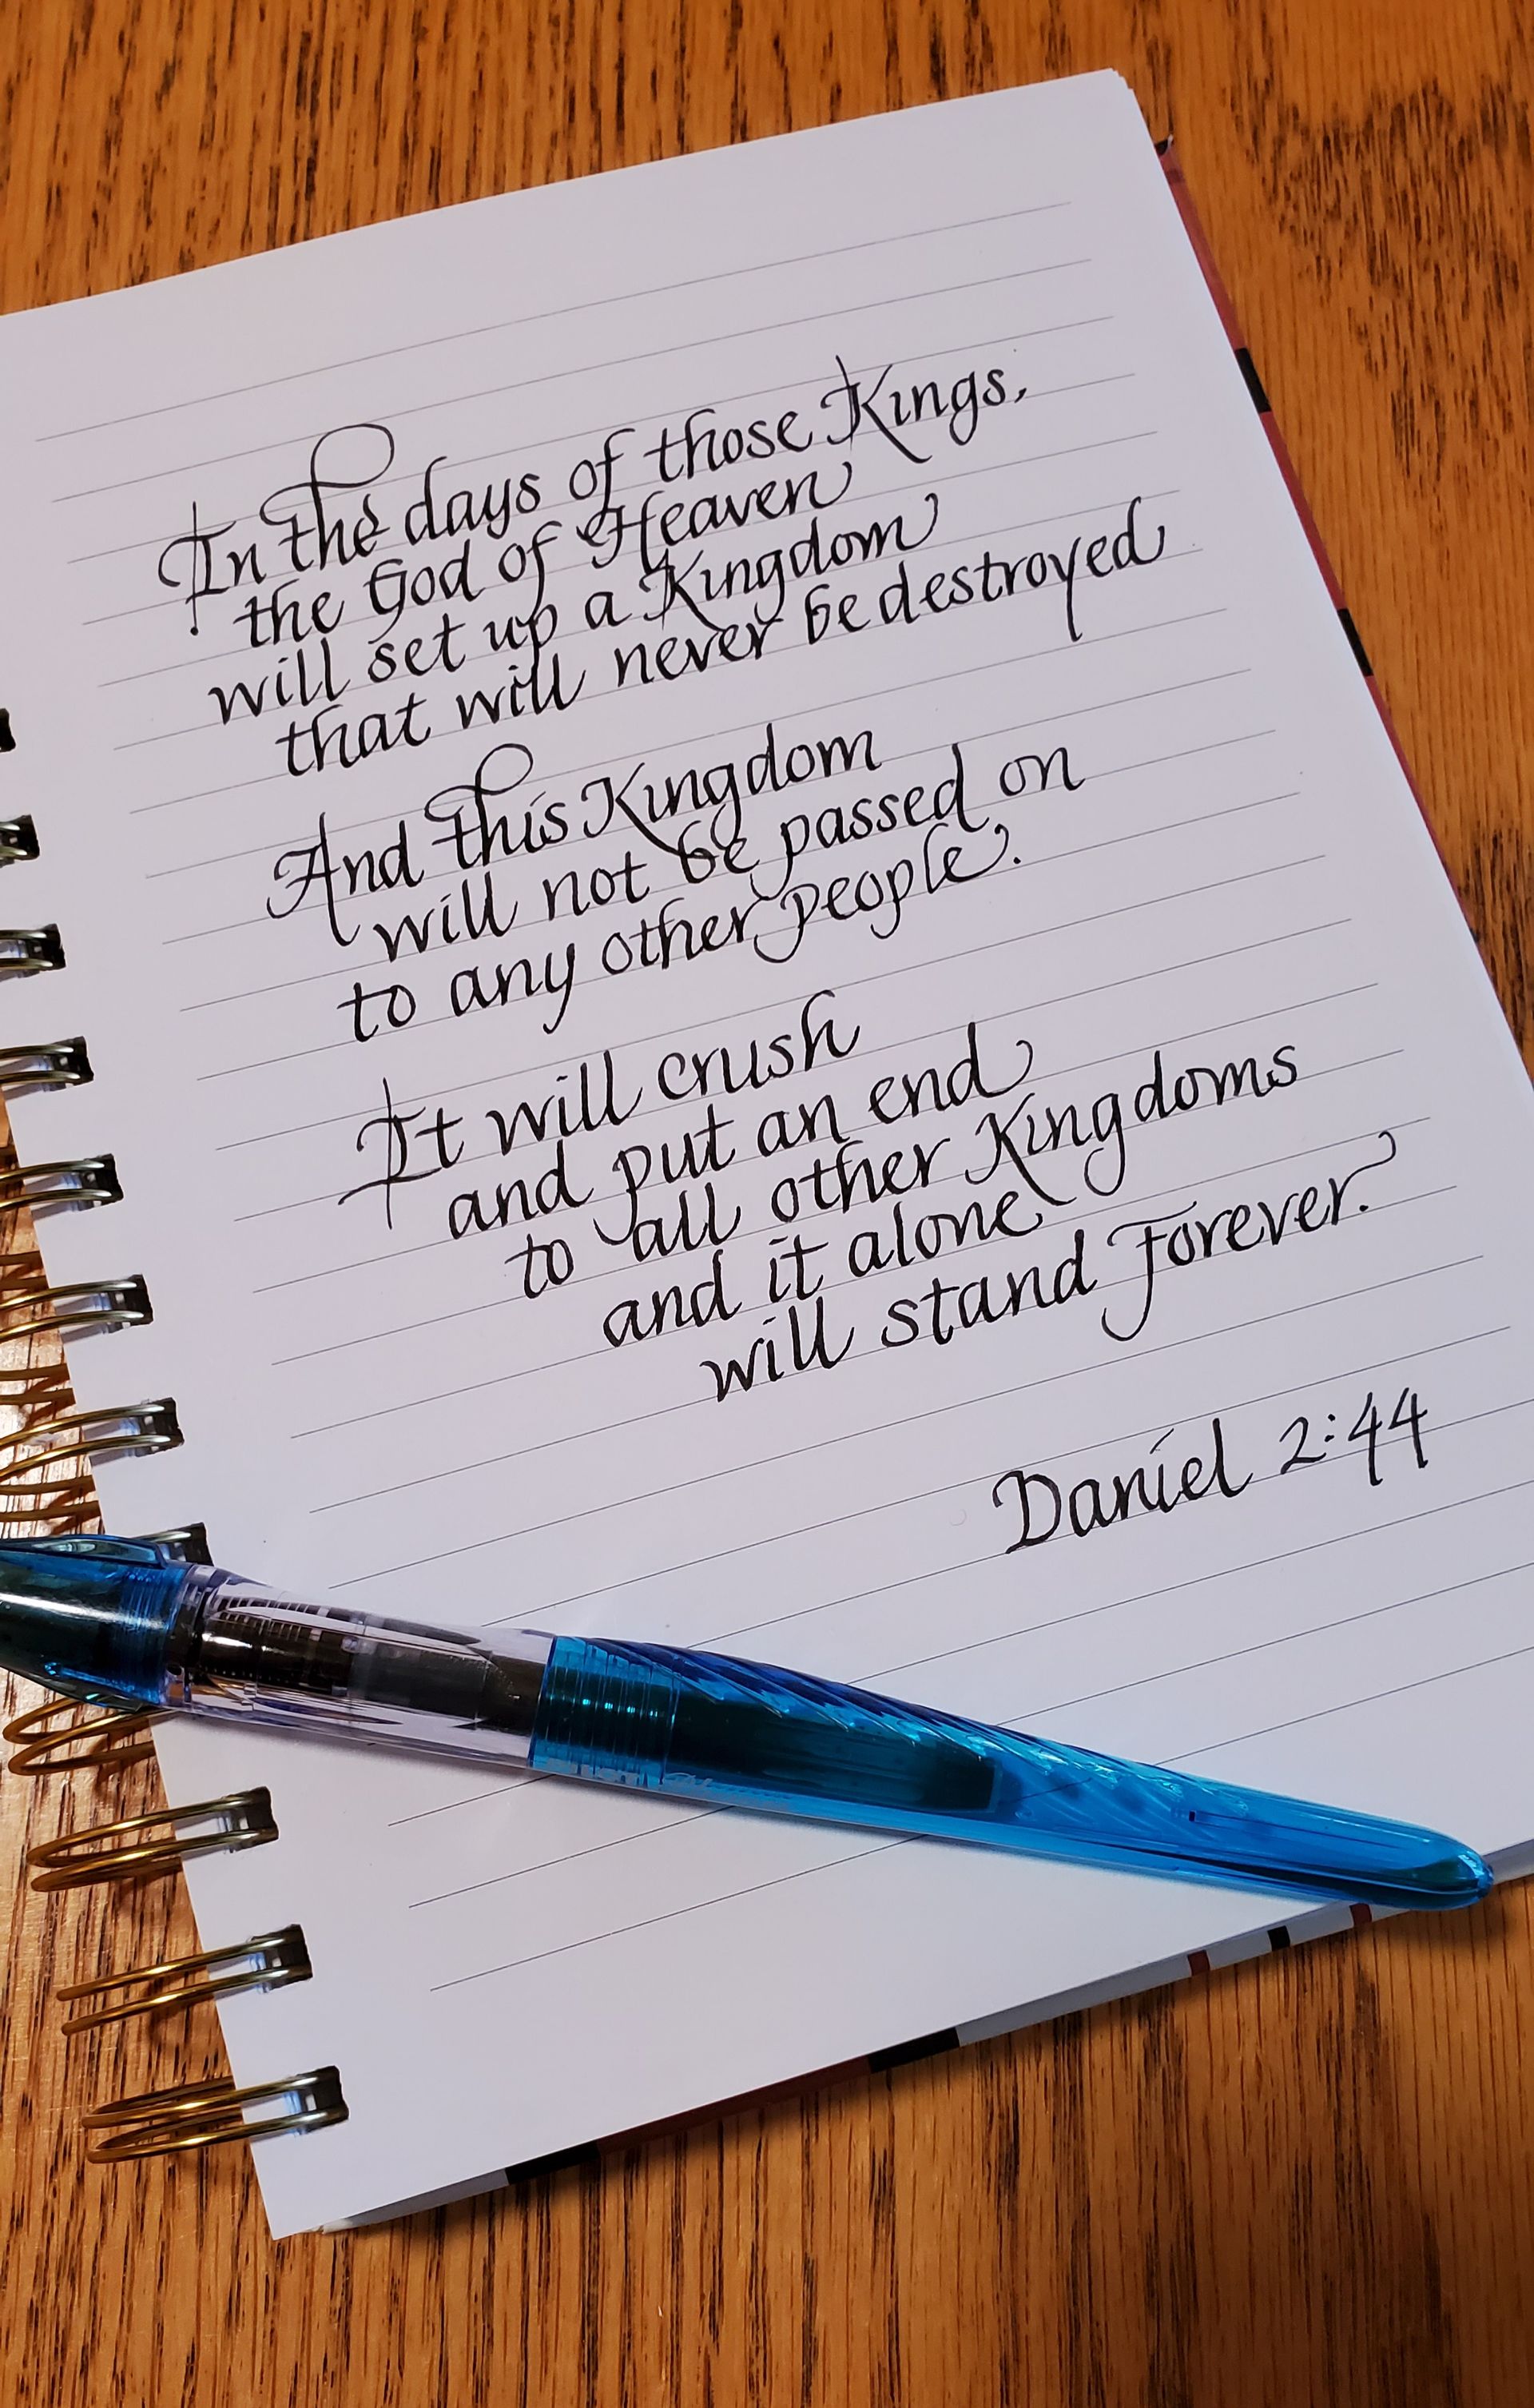 In the days of those Kings,
the God of Heaven
will set up a Kingdom
that will never be destroyed
And this Kingdom
will not be passed on
to any other people.
It will crush
and put an end
to all other Kingdoms
and it alone
will stand Forever.
Daniel 2:44